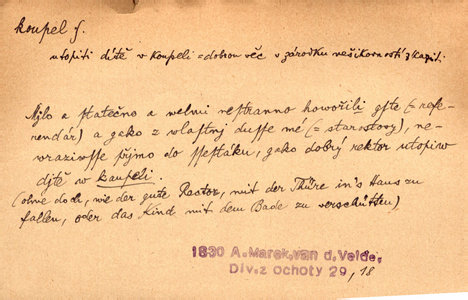 koupel f.
utopiti dítě v koupeli = dobrou věc v zárodku nešikovností zkazit.
Mjlo a statečno a welmi nestranno howořili gste (= refe-
rendář) a gako z wlastnj dusse mé (= starostovy), ne-
wraziwsse přjmo do ssesťáku, gako dobrý rektor utopiw
djtě w kaupeli.
(ohne doch, wie der gute Rector, mit der Thüre in's Haus zu
fallen, oder das Kind mit dem Bade zu verschütten)
1830 A. Marek, van d. Velde,
Div. z ochoty 29, 18